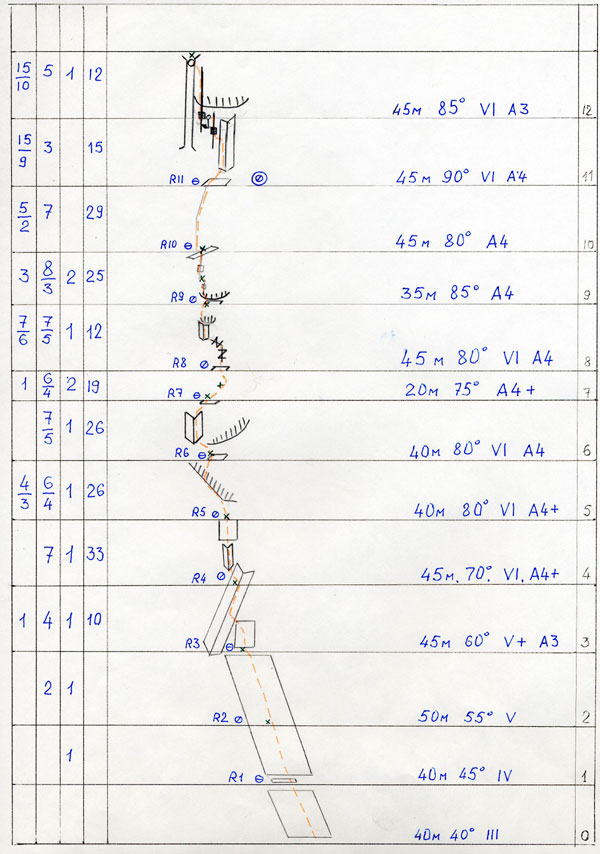 15/10 5 1 12 45м 85° VI A3 12
15/9 3 15 R11 45м 90° VI A4 11
5/2 7 29 R10 45м 80° A4 10
3 8/3 2 25 R9 35м 85° A4 9
7/6 7/5 1 12 R8 45м 80° VI A4 8
1 6/4 2 19 R7 20м 75° A4+ 7
7/5 1 26 R6 40м 80° VI A4 6
4/3 6/4 1 26 R5 40м 80° VI A4+ 5
7 1 33 R4 45м. 70°. VI. A4+ 4
1 4 1 10 R3 45м 60° V+ A3 3
2 1 R2 50м 55° V 2
1 R1 40м 45° IV 1
40м 40° III 0